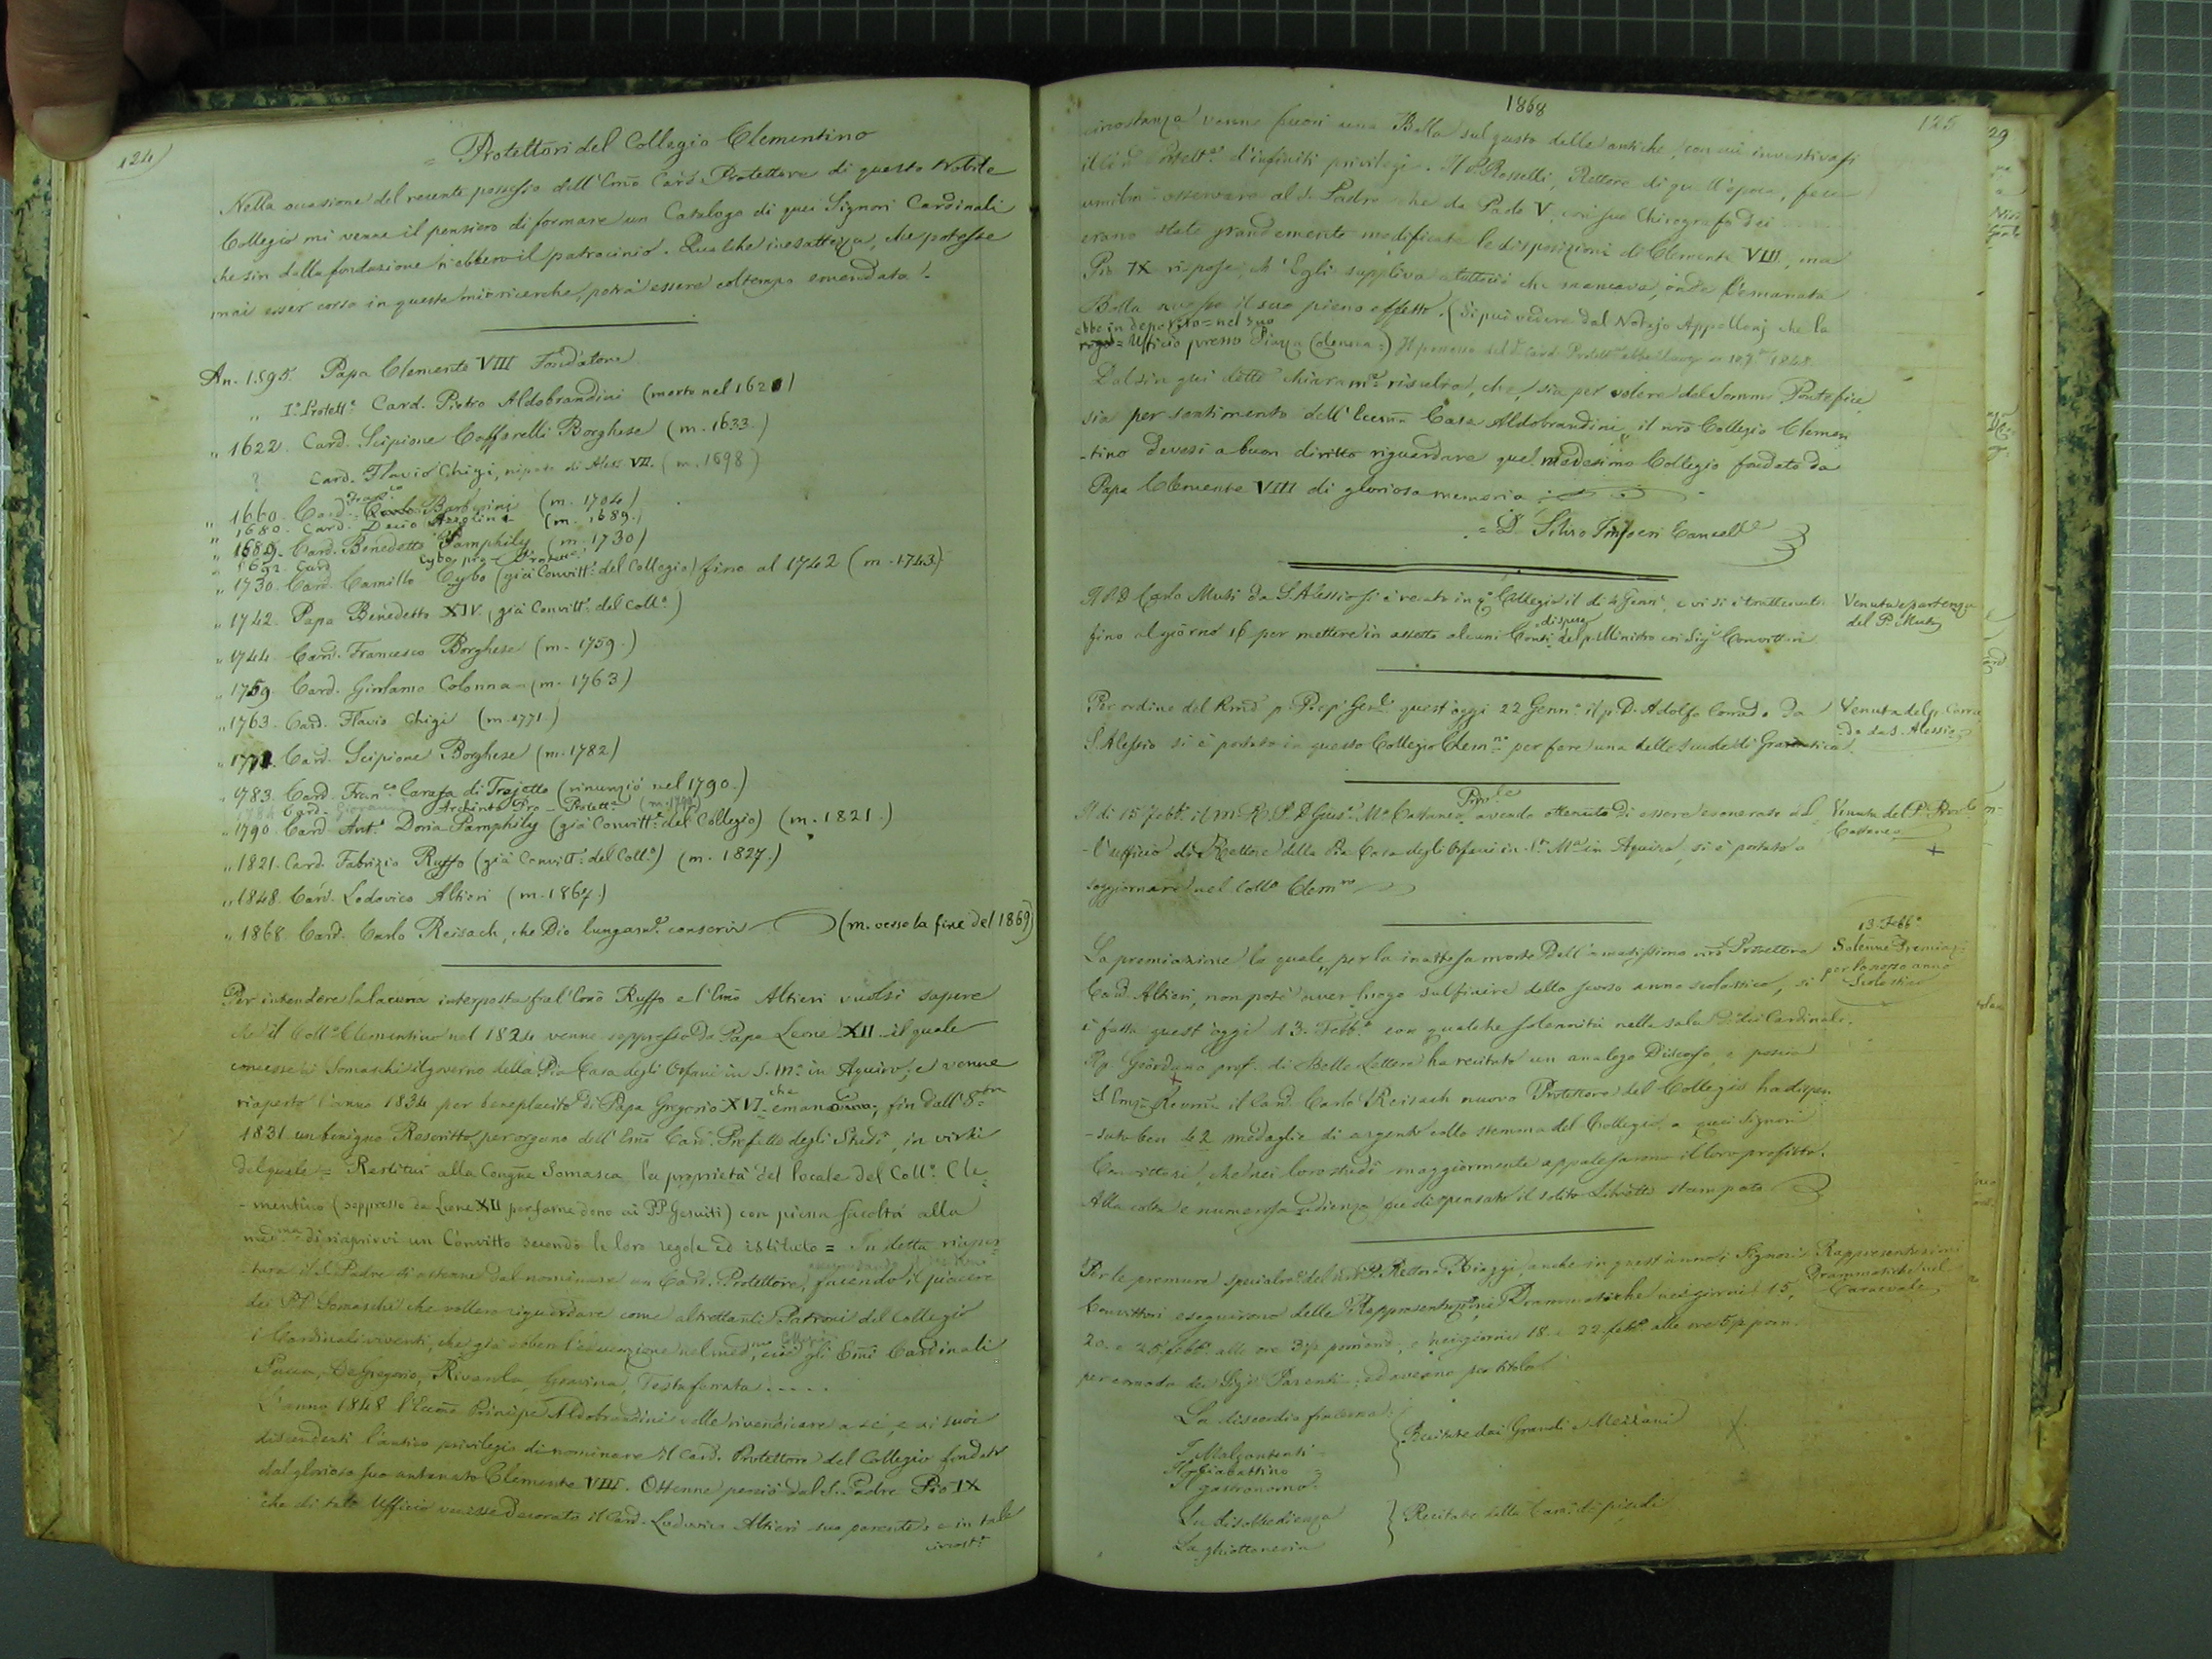 124)
= Protettori del Collegio Clementino
Nella occasione del recente possesso dell'Emo Card. Protettore di questo Nobile
Collegio mi venne il pensiero di formare un Catalogo di quei Signori Cardinali
che sin dalla fondazione n'ebbero il patrocinio. Qualche inesattezza, che potesse
mai esser corsa in queste mie ricerche, potrà essere col tempo emendata.
An. 1595. Papa Clemente VIII Fondatore
„ I.° Protett.e Card. Pietro Aldobrandini (morto nel 1621)
„ 1622. Card. Scipione Caffarelli Borghese (m. 1633.)
? Card. Flavio Chigi, nipote di Aless. VII. (m. 1698)
„ 1660. Card. Carlo Barberini (m. 1704)
„ 1680. Card. Decio Azzolini (m. 1689.)
„ 1689. Card. Benedetto Pamphily (m. 1730)
Card. Cybo, pro-
„ 1730. Card. Camillo Cybo (già Convitt.e del Collegio) fino al 1742 (m. 1743)
„ 1742. Papa Benedetto XIV (già Convitt.e del Coll.o)
„ 1744. Card. Francesco Borghese (m. 1759.)
„ 1759. Card. Girolamo Colonna (m. 1763)
„ 1763. Card. Flavio Chigi (m. 1771)
„ 1771. Card. Scipione Borghese (m. 1782)
„ 1783. Card. Fran.co Carafa di Trajetto (rinunziò nel 1790.)
Card. Giovanni Archinto Pro-Protett.e (m. 1799)
„ 1790. Card. Ant.o Doria Pamphily (già Convitt.e del Collegio) (m. 1821.)
„ 1821. Card. Fabrizio Ruffo (già Convitt.e del Coll.o) (m. 1827.)
„ 1848. Card. Lodovico Altieri (m. 1867.)
„ 1868. Card. Carlo Reisach, che Dio lungam.e conservi (m. verso la fine del 1869)
Per intendere la lacuna interposta fra l'Emo Ruffo e l'Emo Altieri vuolsi sapere
che il Coll.o Clementino nel 1824 venne soppresso da Papa Leone XII il quale
concesse ai Somaschi il governo della Pia Casa degli Orfani in S. M.a in Aquiro; e venne
riaperto l'anno 1834 per beneplacito di Papa Gregorio XVI che emanò, fin dall'8bre
1831 un benigno Rescritto, per organo dell'Emo Card. Prefetto degli Studi, in virtù
del quale = Restituì alla Congne Somasca la proprietà del locale del Coll.o Cle-
-mentino (soppresso da Leone XII per farne dono ai PP. Gesuiti) con piena facoltà alla
med.ma di riaprirvi un Convitto secondo le loro regole ed istituto = In detta riaper-
tura il S. Padre si astenne dal nominare un Card. Protettore, facendo il piacere
dei PP. Somaschi che vollero riguardare come altrettanti Patroni del Collegio
i Cardinali viventi, che già ebber l'educazione nel med.mo Collegio, cioè gli Emi Cardinali
Pacca, De Gregorio, Rivarola, Gravina, Testaferrata....
L'anno 1848 l'Ecc.mo Principe Aldobrandini volle rivendicare a sé, e ai suoi
discendenti l'antico privilegio di nominare il Card. Protettore del Collegio fondato
dal glorioso suo antenato Clemente VIII. Ottenne perciò dal S. Padre Pio IX
che di tale Ufficio venisse decorato il Card. Lodovico Altieri suo parente; e in tale
circost.a
1868
125
circostanza venne fuori una Bolla sul gusto delle antiche, con cui investivasi
il Protett.e d'infiniti privilegi. Il P. Rosselli, Rettore di quell'epoca, fece
umilm.e osservare al S. Padre che da Paolo V con suo Chirografo dei
erano state grandemente modificate le disposizioni di Clemente VIII, ma
Pio IX rispose, ch'Egli suppliva a tuttociò che mancava, onde l'emanata
Bolla avesse il suo pieno effetto. (Si può vedere dal Notajo Appolloni che la
ebbe in deposito = nel suo
Ufficio presso Piazza Colonna =) Il possesso del Card. Protett.e ebbe luogo 1848.
Dal sin qui detto chiaram.e risulta, che, sia per volere del Sommo Pontefice,
sia per sentimento dell'Eccma Casa Aldobrandini, il nro Collegio Clemen
-tino devesi a buon diritto riguardare quel medesimo Collegio fondato da
Papa Clemente VIII di gloriosa memoria
= D. Silvio Imperi Cancell.e
Il P. D. Carlo Muti da S. Alessio si è recato in q.o Collegio il dì 4 Genn.o, e vi si è trattenuto
fino al giorno 16 per mettere in assetto alcuni Conti di spese del p. Ministro coi Sig.i Convittori
Venuta e partenza
del P. Muti
Per ordine del Rmo p. Prep.o Gen.le quest'oggi 22 Genn.o il p. D. Adolfo Conrado da
S. Alessio si è portato in questo Collegio Clem.no per fare una delle scuole di Gramatica.
Venuta del p. Conra
-do da S. Alessio
Il dì 15 Febb.o il M. R. P. D. Gius.e M.a Cattaneo Prov.le avendo ottenuto di essere esonerato dal
-l'ufficio di Rettore della Pia Casa degli Orfani in S.a M.a in Aquiro, si è portato a
soggiornare nel Coll.o Clem.no
Venuta del P. Prov.le
Cattaneo
La premiazione la quale, per la inattesa morte dell'amatissimo nro Protettore
Card. Altieri, non potè aver luogo sul finire dello scorso anno scolastico, si
è fatta quest'oggi 13. Febb.o con qualche solennità nella sala dei Cardinali.
Il p. Giordano prof. di Belle Lettere ha recitato un analogo Discorso, e poscia
S. Emza Revma il Card. Carlo Reisach nuovo Protettore del Collegio ha dispen
-sato ben 42 medaglie di argento collo stemma del Collegio, a quei Signori
Convittori, che nei loro studi maggiormente appalesarono il loro profitto.
Alla colta e numerosa udienza fu dispensato il solito Libretto stampato
13. Febb.o
Solenne Premiaz.
per lo scorso anno
Scolastico
Per le premure speciali del P. Rettor. Biaggi, anche in quest'anno i Signori
Convittori eseguirono delle Rappresentazioni Drammatiche nei giorni 15,
20. e 25 febb.o alle ore 3½ pomerid. e nei giorni 18. e 22 febb.o alle ore 5½ pom.
per comodo dei Sig.i Parenti; ed aveano per titolo
Rappresentazioni
Drammatiche nel
Carnevale
La discordia fraterna
I Malcontenti
Il Ciabattino
Il gastronomo
Recitate dai Grandi e Mezzani
La disobbedienza
La ghiottoneria
Recitate dalla Cam.ta di piccoli